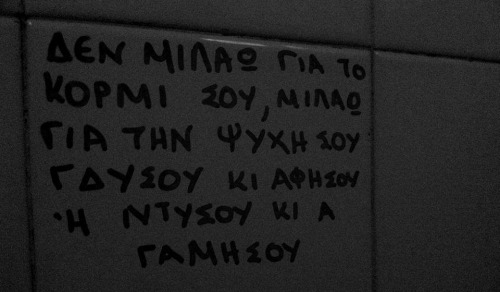 ΔΕΝ ΜΙΛΑΩ ΓΙΑ ΤΟ
ΚΟΡΜΙ ΣΟΥ, ΜΙΛΑΩ
ΓΙΑ ΤΗΝ ΨΥΧΗ ΣΟΥ
ΓΔΥΣΟΥ ΚΙ ΑΦΗΣΟΥ
Ή ΝΤΥΣΟΥ ΚΙ Α
ΓΑΜΗΣΟΥ